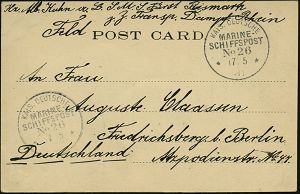 Kuhn S.M.S. Fürst Bismarck
z. Z. Transp. Dampf. Rhein
Feld POST CARD
KAIS. DEUTSCHE
MARINE-
SCHIFFSPOST
No 26
17 5
An Frau
Auguste Claassen
Friedrichsberg b. Berlin
Deutschland
KAIS. DEUTSCHE
MARINE-
SCHIFFSPOST
No 26
17 5